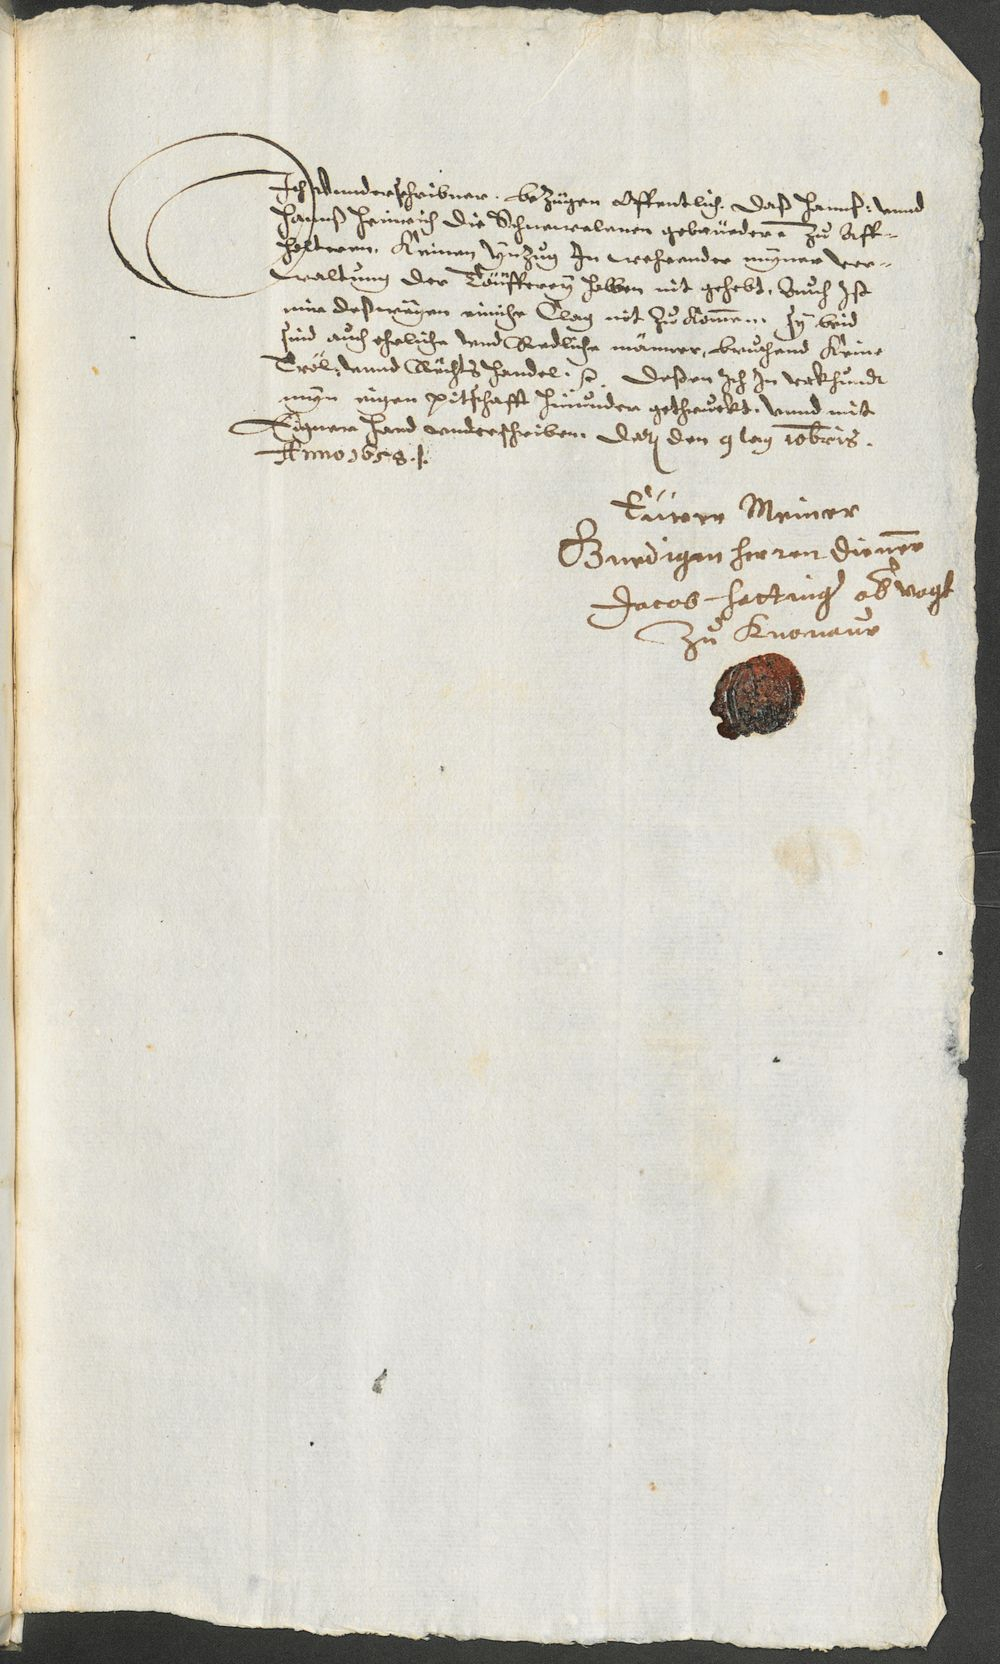 Ich underschribner. bezügen offentlich. daß Hanß: unnd
Hannß Heinrich die Schneweelenen gebrüedere zu Aff-
holteren. Keinen ynzug In wehrender myner ver-
waltung der Töüfferey halben nit gehebt. Auch Ist
mir deßwegen einiche Clag nit zu komen. Sy beid
sind auch ehrliche und Redliche männer, bruchend Keine
Tröl: unnd Händel. Deßen Ich In urkhundt
myn eigen pitschafft hierunder getruckt. unnd mit
Eigner hand underschriben. den 9 tag 10bris.
Anno 1658.
Eüwer Meiner
Gnedigen herren diener
Jacob Hottinger obervogt
Zu Knonauw